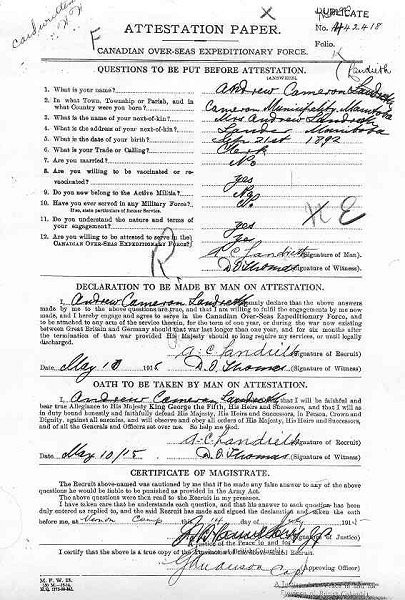 DUPLICATE
ATTESTATION PAPER.
No. 442418
Folio.
CANADIAN OVER-SEAS EXPEDITIONARY FORCE.
Landreth
QUESTIONS TO BE PUT BEFORE ATTESTATION.
(ANSWERS)
1. What is your name? Andrew Cameron Landreth
2. In what Town, Township or Parish, and in what Country were you born? Cameron Municipality, Manitoba
3. What is the name of your next-of-kin? Mrs Andrew Landreth
4. What is the address of your next-of-kin? Lauder Manitoba
5. What is the date of your birth? Sept. 21st 1892
6. What is your Trade or Calling? Clerk
7. Are you married? No
8. Are you willing to be vaccinated or re-vaccinated? yes
9. Do you now belong to the Active Militia? No
10. Have you ever served in any Military Force? No
If so, state particulars of former Service.
11. Do you understand the nature and terms of your engagement? yes
12. Are you willing to be attested to serve in the CANADIAN OVER-SEAS EXPEDITIONARY FORCE? Yes
A C Landreth (Signature of Man)
D. O. Thomas (Signature of Witness)
DECLARATION TO BE MADE BY MAN ON ATTESTATION.
I, Andrew Cameron Landreth, do solemnly declare that the above answers
made by me to the above questions are true, and that I am willing to fulfil the engagements by me now
made, and I hereby engage and agree to serve in the Canadian Over-Seas Expeditionary Force, and
to be attached to any arm of the service therein, for the term of one year, or during the war now existing
between Great Britain and Germany should that war last longer than one year, and for six months after
the termination of that war provided His Majesty should so long require my services, or until legally
discharged.
A-C Landreth (Signature of Recruit)
Date May 10 1915 D. O. Thomas (Signature of Witness)
OATH TO BE TAKEN BY MAN ON ATTESTATION.
I, Andrew Cameron Landreth, do make Oath, that I will be faithful and
bear true Allegiance to His Majesty King George the Fifth, His Heirs and Successors, and that I will as
in duty bound honestly and faithfully defend His Majesty, His Heirs and Successors, in Person, Crown and
Dignity, against all enemies, and will observe and obey all orders of His Majesty, His Heirs and Successors,
and of all the Generals and Officers set over me. So help me God.
A-C Landreth (Signature of Recruit)
Date May 10/15 D. O. Thomas (Signature of Witness)
CERTIFICATE OF MAGISTRATE.
The Recruit above-named was cautioned by me that if he made any false answer to any of the above
questions he would be liable to be punished as provided in the Army Act.
The above questions were then read to the Recruit in my presence.
I have taken care that he understands each question, and that his answer to each question has been
duly entered as replied to, and the said Recruit has made and signed the declaration and taken the oath
before me, at Vernon Camp this 14 day of July 1915
(Signature of Justice)
I certify that the above is a true copy of the Attestation of the above-named Recruit.
(Approving Officer)
M. F. W. 23.